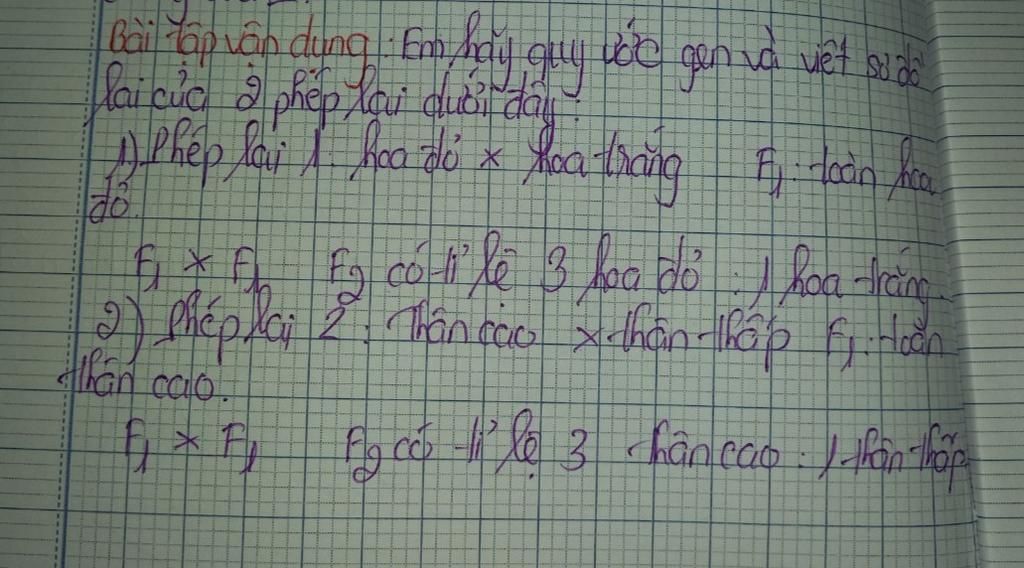 Bài tập vận dụng: Em hãy quy ước gen và viết sơ đồ
lai của 2 phép lai dưới đây:
1) Phép lai 1: hoa đỏ × hoa trắng F1: toàn hoa
đỏ.
F1 × F1 F2 có tỉ lệ 3 hoa đỏ : 1 hoa trắng.
2) Phép lai 2: Thân cao × thân thấp F1: toàn
thân cao.
F1 × F1 F2 có tỉ lệ 3 thân cao : 1 thân thấp